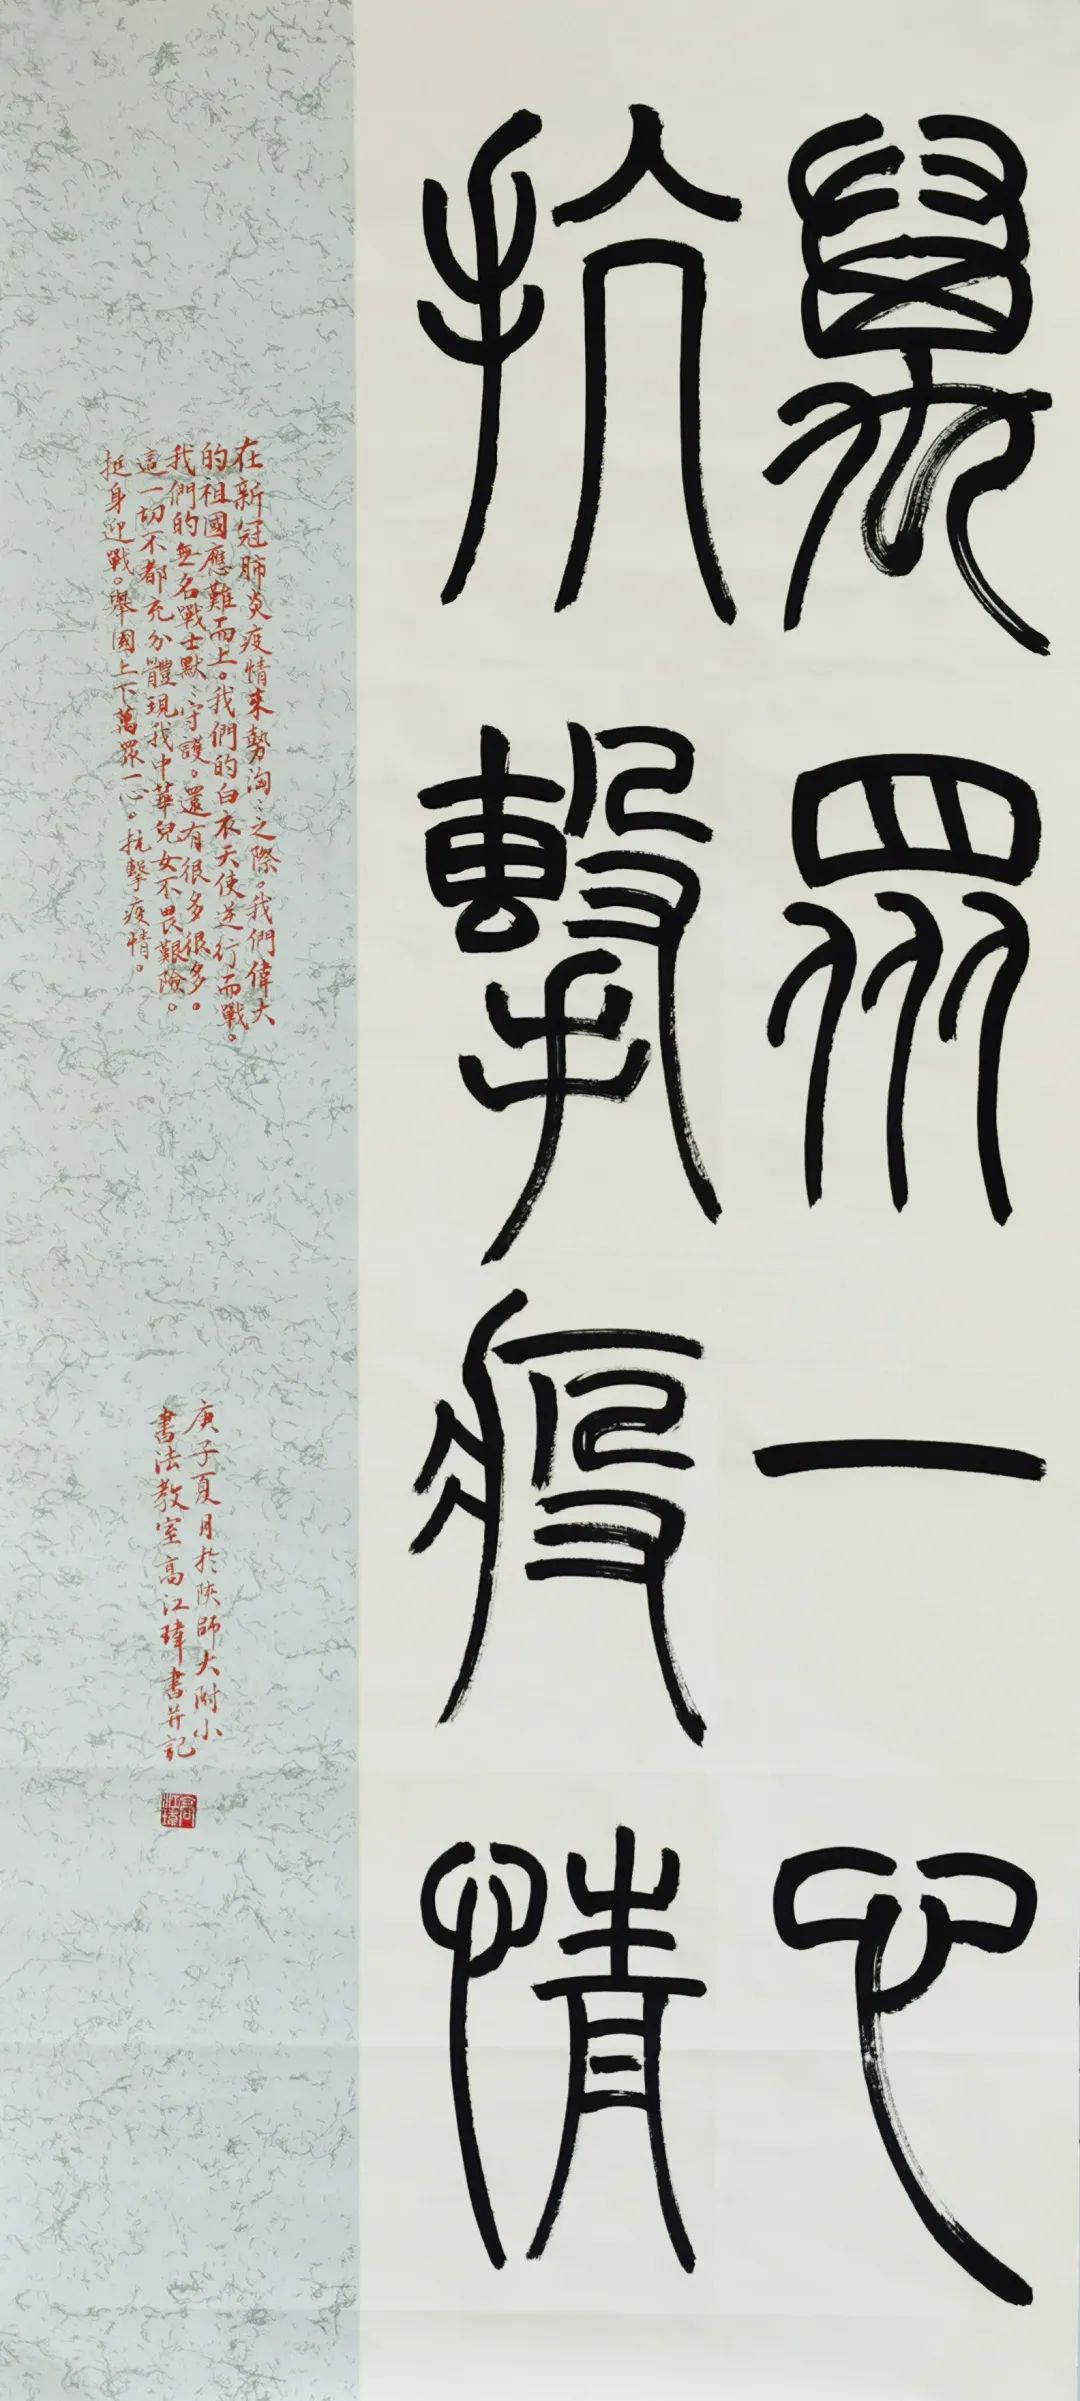 萬眾一心
抗擊疫情
在新冠肺炎疫情来勢洶々之際。我們偉大
的祖國應難而上。我們的白衣天使逆行而戰。
我們的無名戰士默々守護。還有很多很多。
這一切不都充分體現我中華兒女不畏艱險。
挺身迎戰。舉國上下萬眾一心。抗擊疫情。
庚子夏月於陝師大附小
書法教室高江瑋書并記
高江瑋